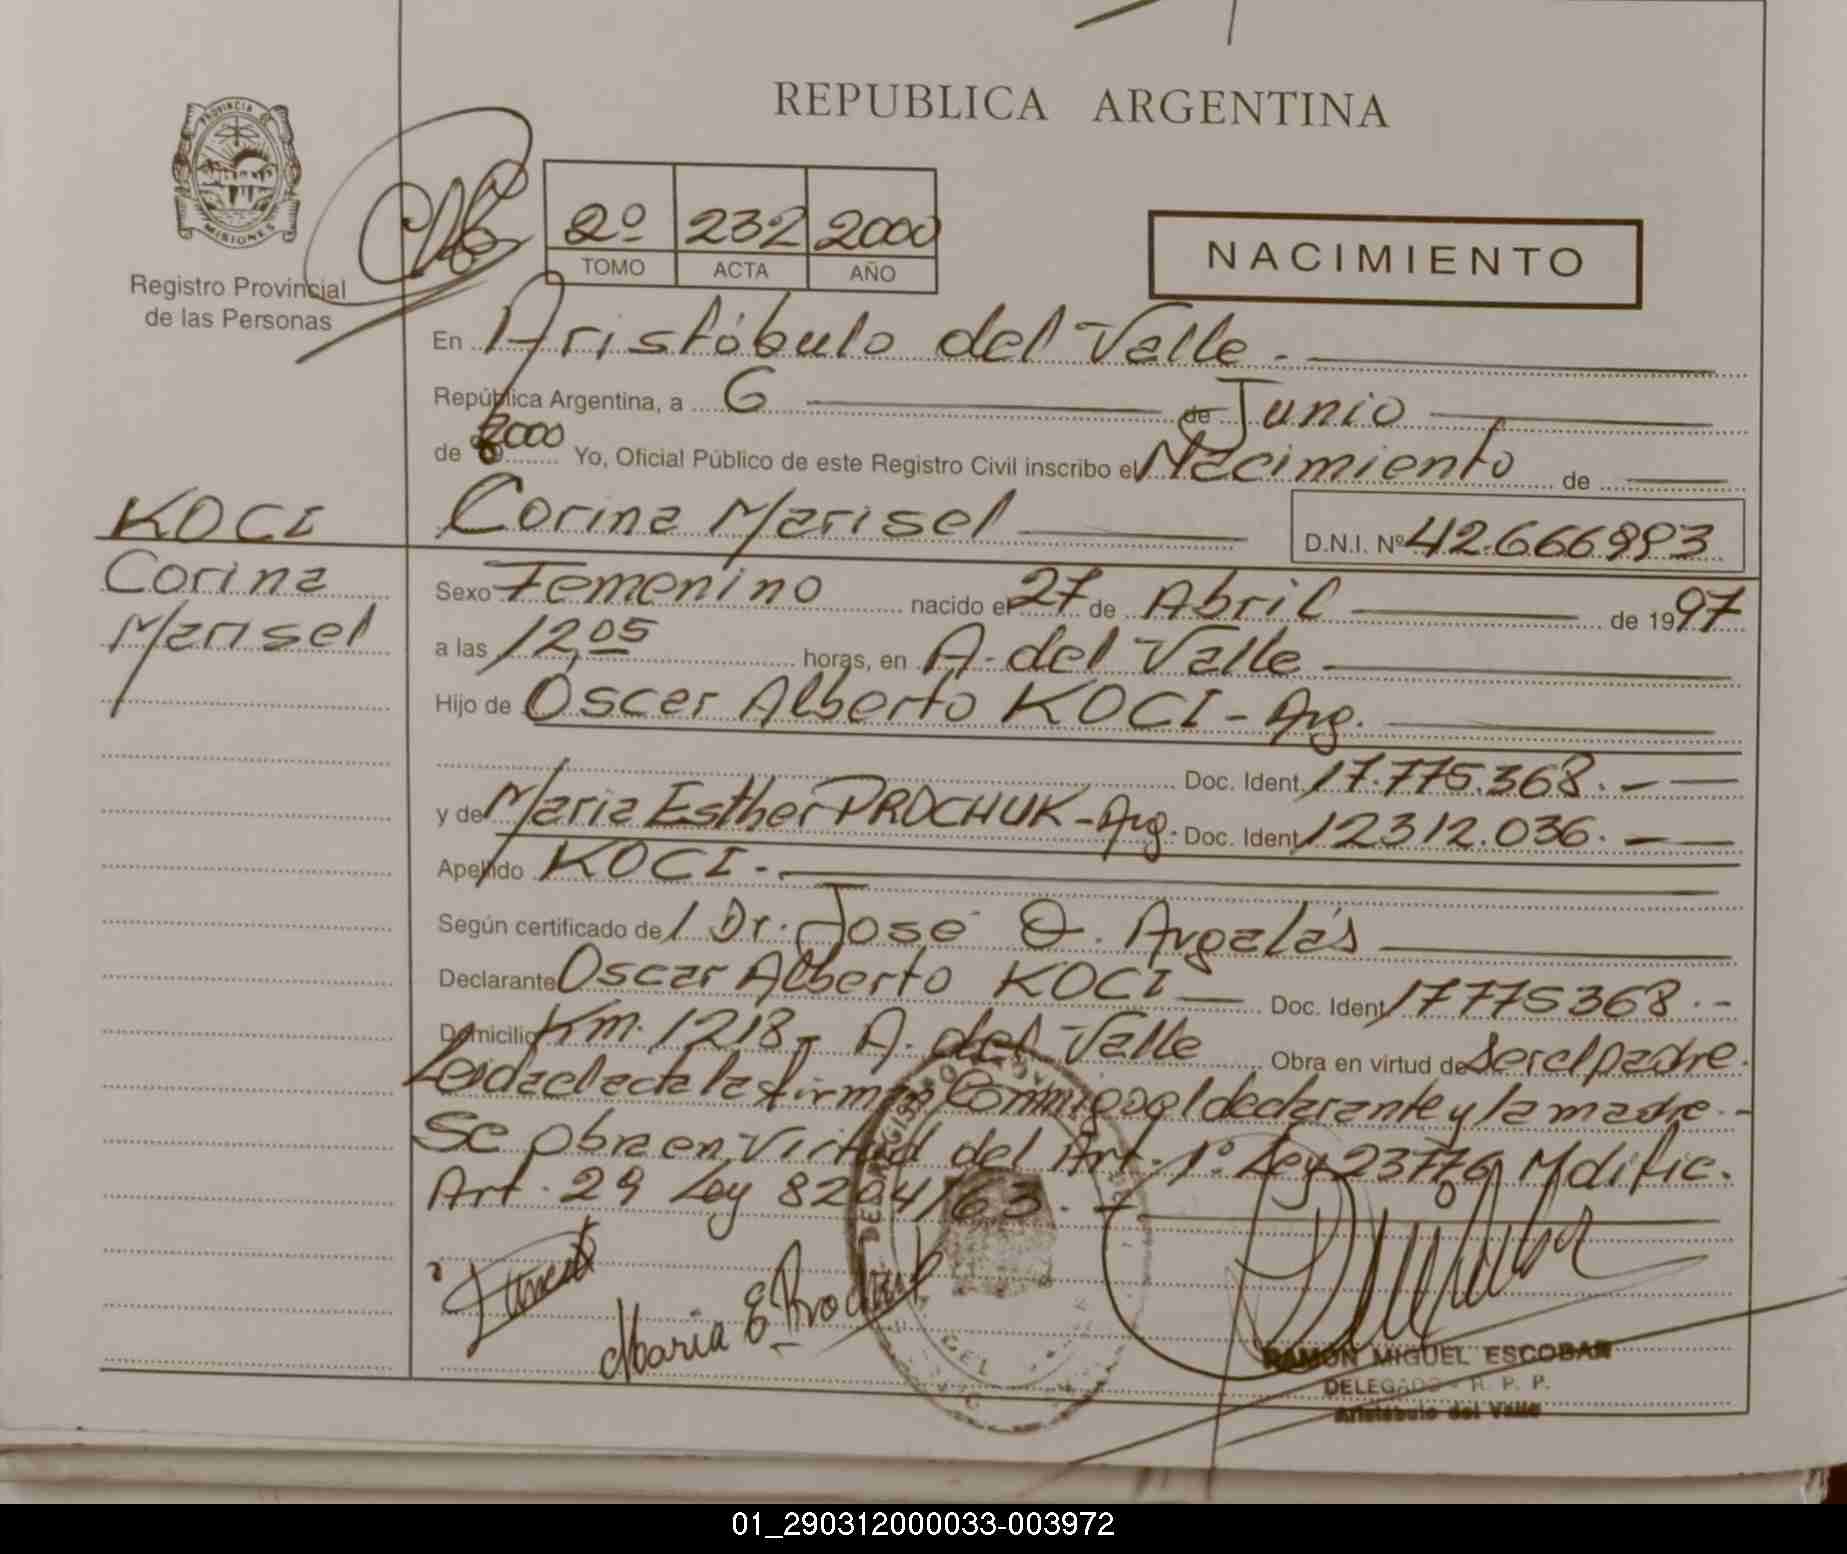 REPUBLICA ARGENTINA
PROVINCIA DE
MISIONES
Registro Provincial
de las Personas
2º 232 2000
TOMO ACTA AÑO
NACIMIENTO
En Aristóbulo del Valle.
República Argentina, a 6 de Junio
de 2000 Yo, Oficial Público de este Registro Civil inscribo el Nacimiento de
KOCI
Corina Marisel
D.N.I. Nº 42.666993
Corina
Marisel
Sexo Femenino nacido el 27 de Abril de 1997
a las 12,05 horas, en A. del Valle
Hijo de Oscar Alberto KOCI - Arg.
Doc. Ident. 17.775.368.-
y de Maria Esther PROCHUK - Arg. Doc. Ident. 12312.036.-
Apellido KOCI.
Según certificado de Dr. José O. Argalás
Declarante Oscar Alberto KOCI Doc. Ident. 17775368.-
Domicilio Km. 1218 - A. del Valle Obra en virtud de Ser el padre.
Leida el acta la firman Conmigo el declarante y la madre.-
Se obra en Virtud del Art. 1º Ley 23776 Mdific.
Art. 29 Ley 8204/63.-
Maria E. Prochuk
RAMÓN MIGUEL ESCOBAR
DELEGADO - R. P. P.
Aristóbulo del Valle
01_290312000033-003972